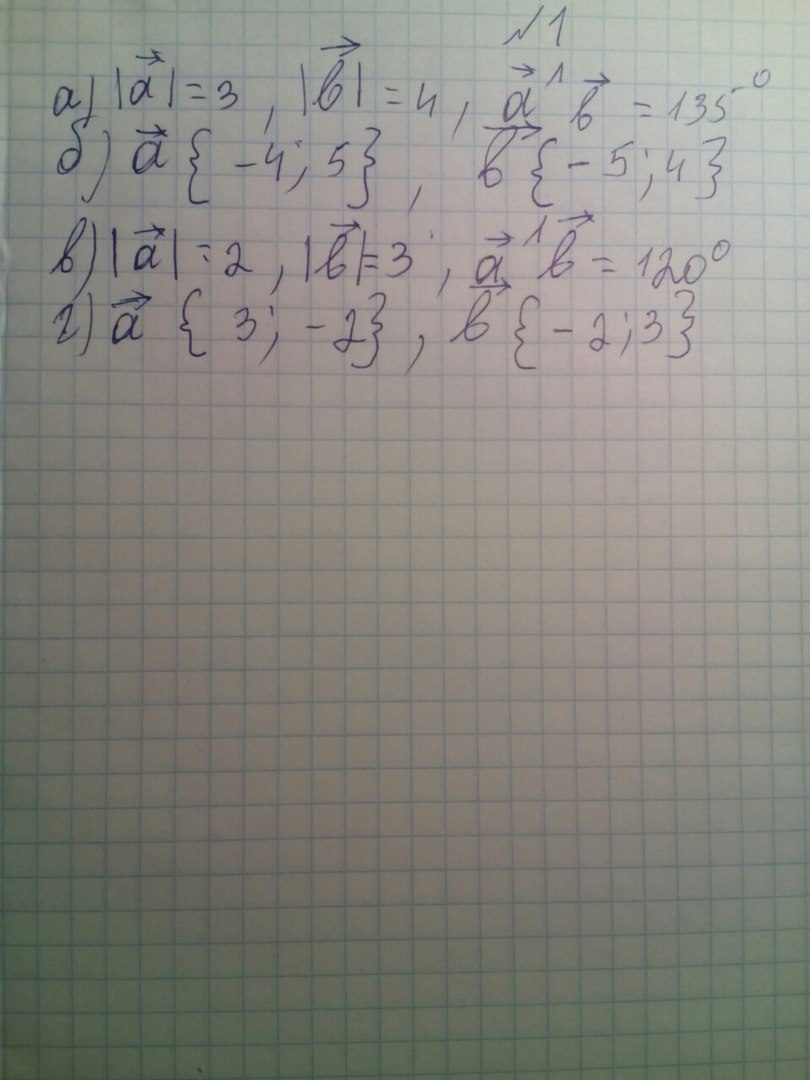 №1
а) |a⃗| = 3, |b⃗| = 4, a⃗^b⃗ = 135°
б) a⃗ {-4; 5}, b⃗ {-5; 4}
в) |a⃗| = 2, |b⃗| = 3, a⃗^b⃗ = 120°
г) a⃗ {3; -2}, b⃗ {-2; 3}